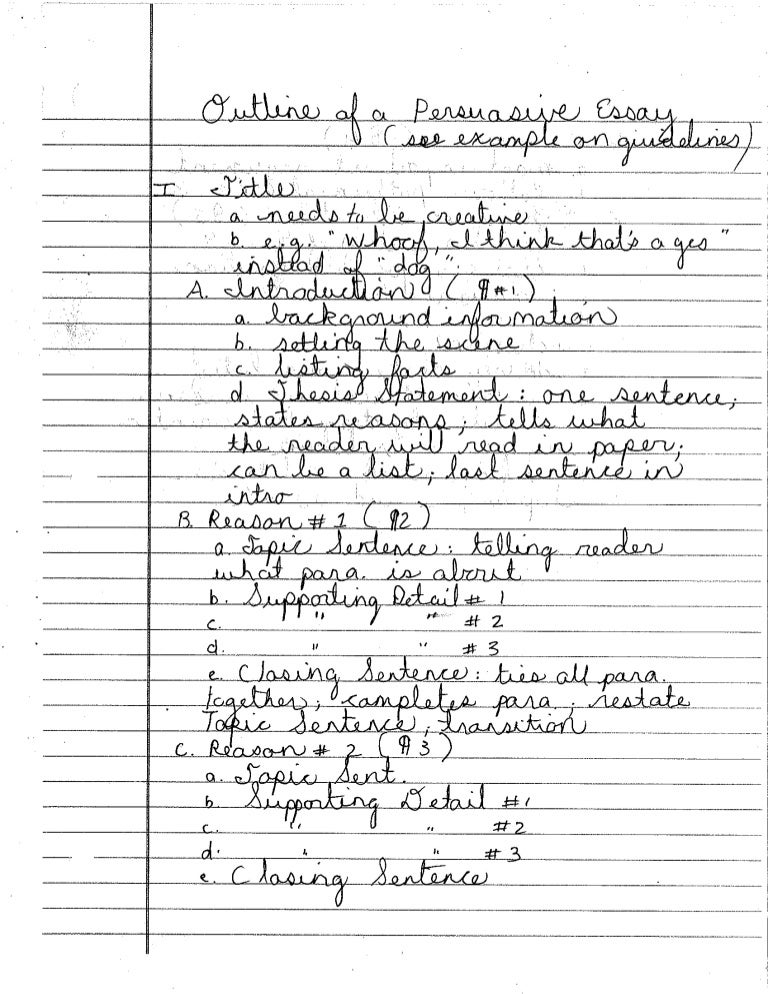 Outline of a Persuasive Essay
(see example on guidelines)
I Title
a needs to be creative
b. e.g. "Whoof, I think that's a yes"
instead of "dog".
A. Introduction (¶#1)
a. background information
b. setting the scene
c. listing facts
d Thesis Statement: one sentence;
states reasons; tells what
the reader will read in paper;
can be a list; last sentence in
intro
B. Reason # 1 (¶2)
a. Topic Sentence: telling reader
what para. is about
b. Supporting Detail # 1
c. " " # 2
d. " " # 3
e. Closing Sentence: ties all para.
together; completes para; restate
Topic Sentence; transition
C. Reason # 2 (¶3)
a. Topic Sent.
b. Supporting Detail #1
c. " " #2
d. " " #3
e. Closing Sentence